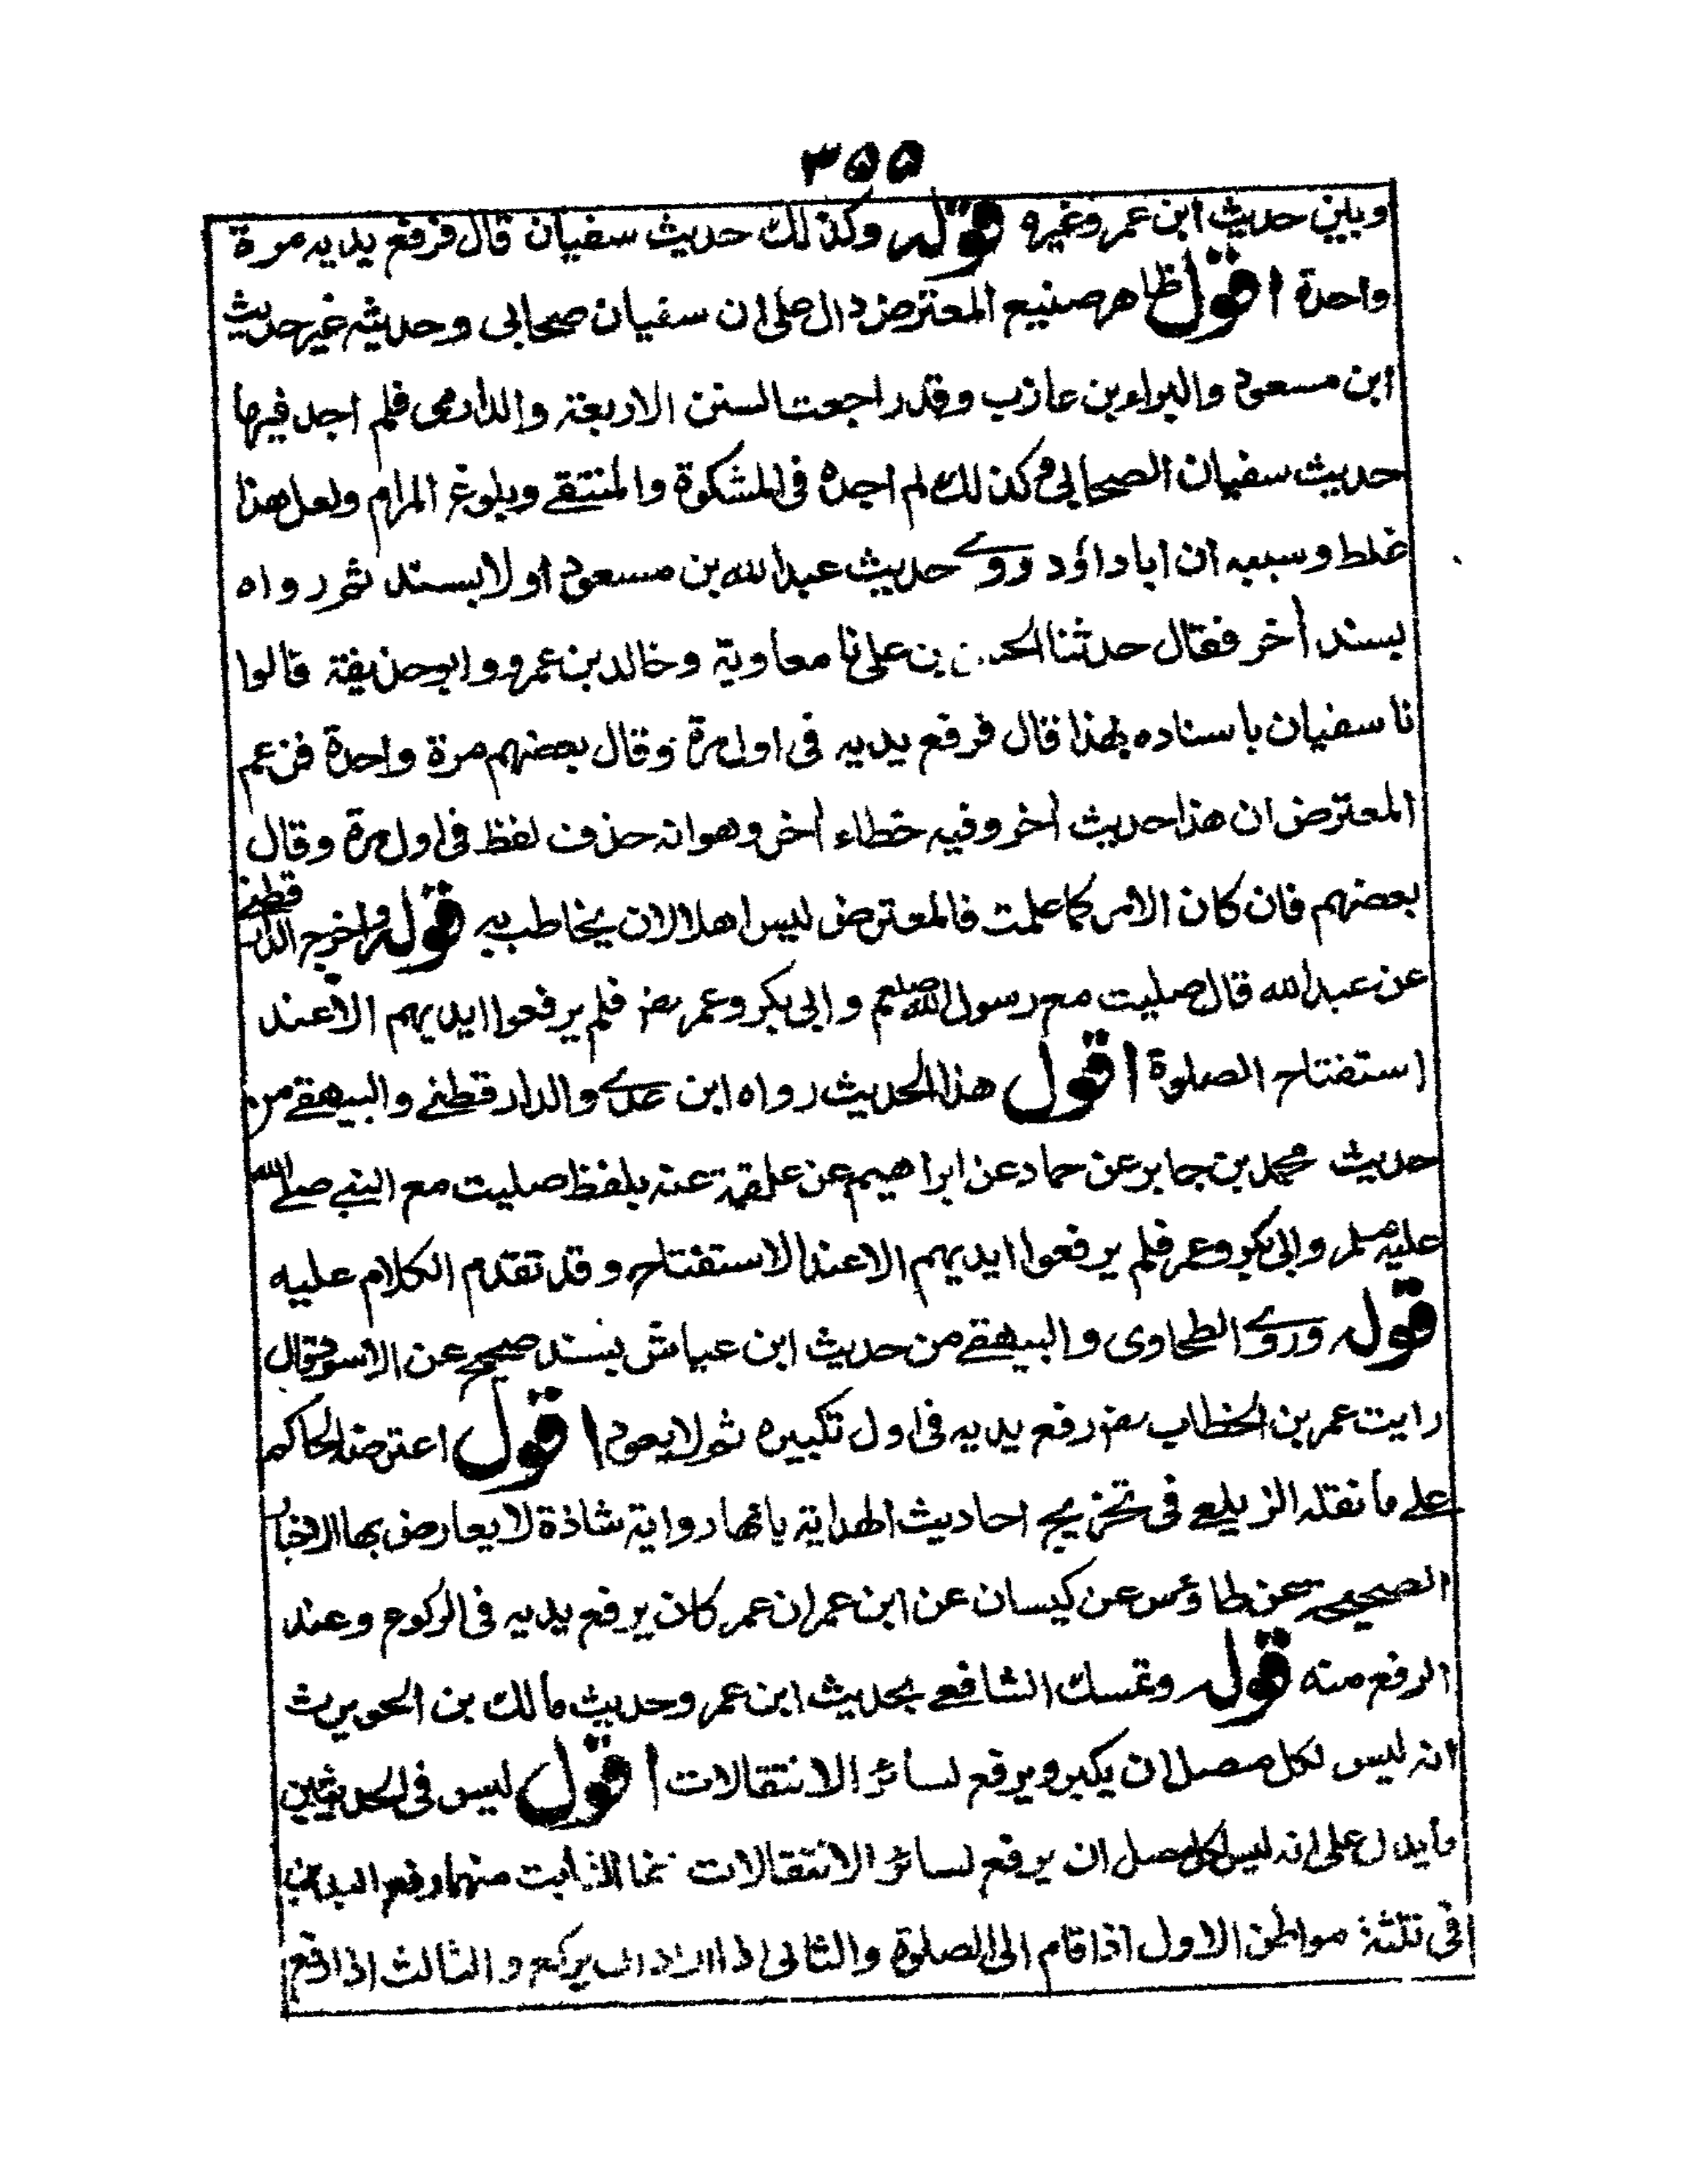 ٣٥٥
وبين حديث ابن عمر وغيره قوله وكذلك حديث سفيان قال فرفع يديه مرة
واحدة اقول ظاهر صنيع المعترض دال على ان سفيان صحابي وحديثه غير حديث
ابن مسعود والبراء بن عازب وقد راجعت السنن الاربعة والدارمى فلم اجد فيها
حديث سفيان الصحابي وكذلك لم اجده فى المشكوة والمنتقے وبلوغ المرام ولعل هذا
غلط وسببه ان ابا داؤد روے حديث عبد الله بن مسعود اولا بسند ثم رواه
بسند اخر فقال حدثنا الحسن بن على نا معاوية وخالد بن عمرو وابو حذيفة قالوا
نا سفيان باسناده بهذا قال فرفع يديه فى اول مرة وقال بعضهم مرة واحدة فزعم
المعترض ان هذا حديث اخر وفيه خطاء اخر وهو انه حذف لفظ فى اول مرة وقال
بعضهم فان كان الامر كما علمت فالمعترض ليس اهلا لان يخاطب به قوله واخرج الدار قطنے
عن عبد الله قال صليت مع رسول الله صلعم وابى بكر وعمر رض فلم يرفعوا ايديهم الا عند
استفتاح الصلوة اقول هذا الحديث رواه ابن عدے والدار قطنے والبيهقے من
حديث محمد بن جابر عن حماد عن ابراهيم عن علقمة عنه بلفظ صليت مع النبے صلے الله
عليه وسلم وابى بكر وعمر فلم يرفعوا ايديهم الا عند الاستفتاح وقد تقدم الكلام عليه
قوله وروے الطحاوى والبيهقے من حديث ابن عياش بسند صحيح عن الاسود قال
رايت عمر بن الخطاب رض رفع يديه فى اول تكبيره ثم لا يعود اقول اعترضه الحاكم
علے ما نقله الزيلعے فى تخريج احاديث الهداية بانها رواية شاذة لا يعارض بها الاخبار
الصحيحة عن طاؤس عن كيسان عن ابن عمر ان عمر كان يرفع يديه فى الركوع وعند
الرفع منه قوله وتمسك الشافعے بحديث ابن عمر وحديث مالك بن الحويرث
انه ليس لكل مصل ان يكبر ويرفع لسائر الانتقالات اقول ليس فى الحديثين
ما يدل على انه ليس لكل مصل ان يرفع لسائر الانتقالات انما الثابت منهما رفع اليدين
فى ثلثة مواطن الاول اذا قام الى الصلوة والثانى اذا اراد ان يركع والثالث اذا رفع